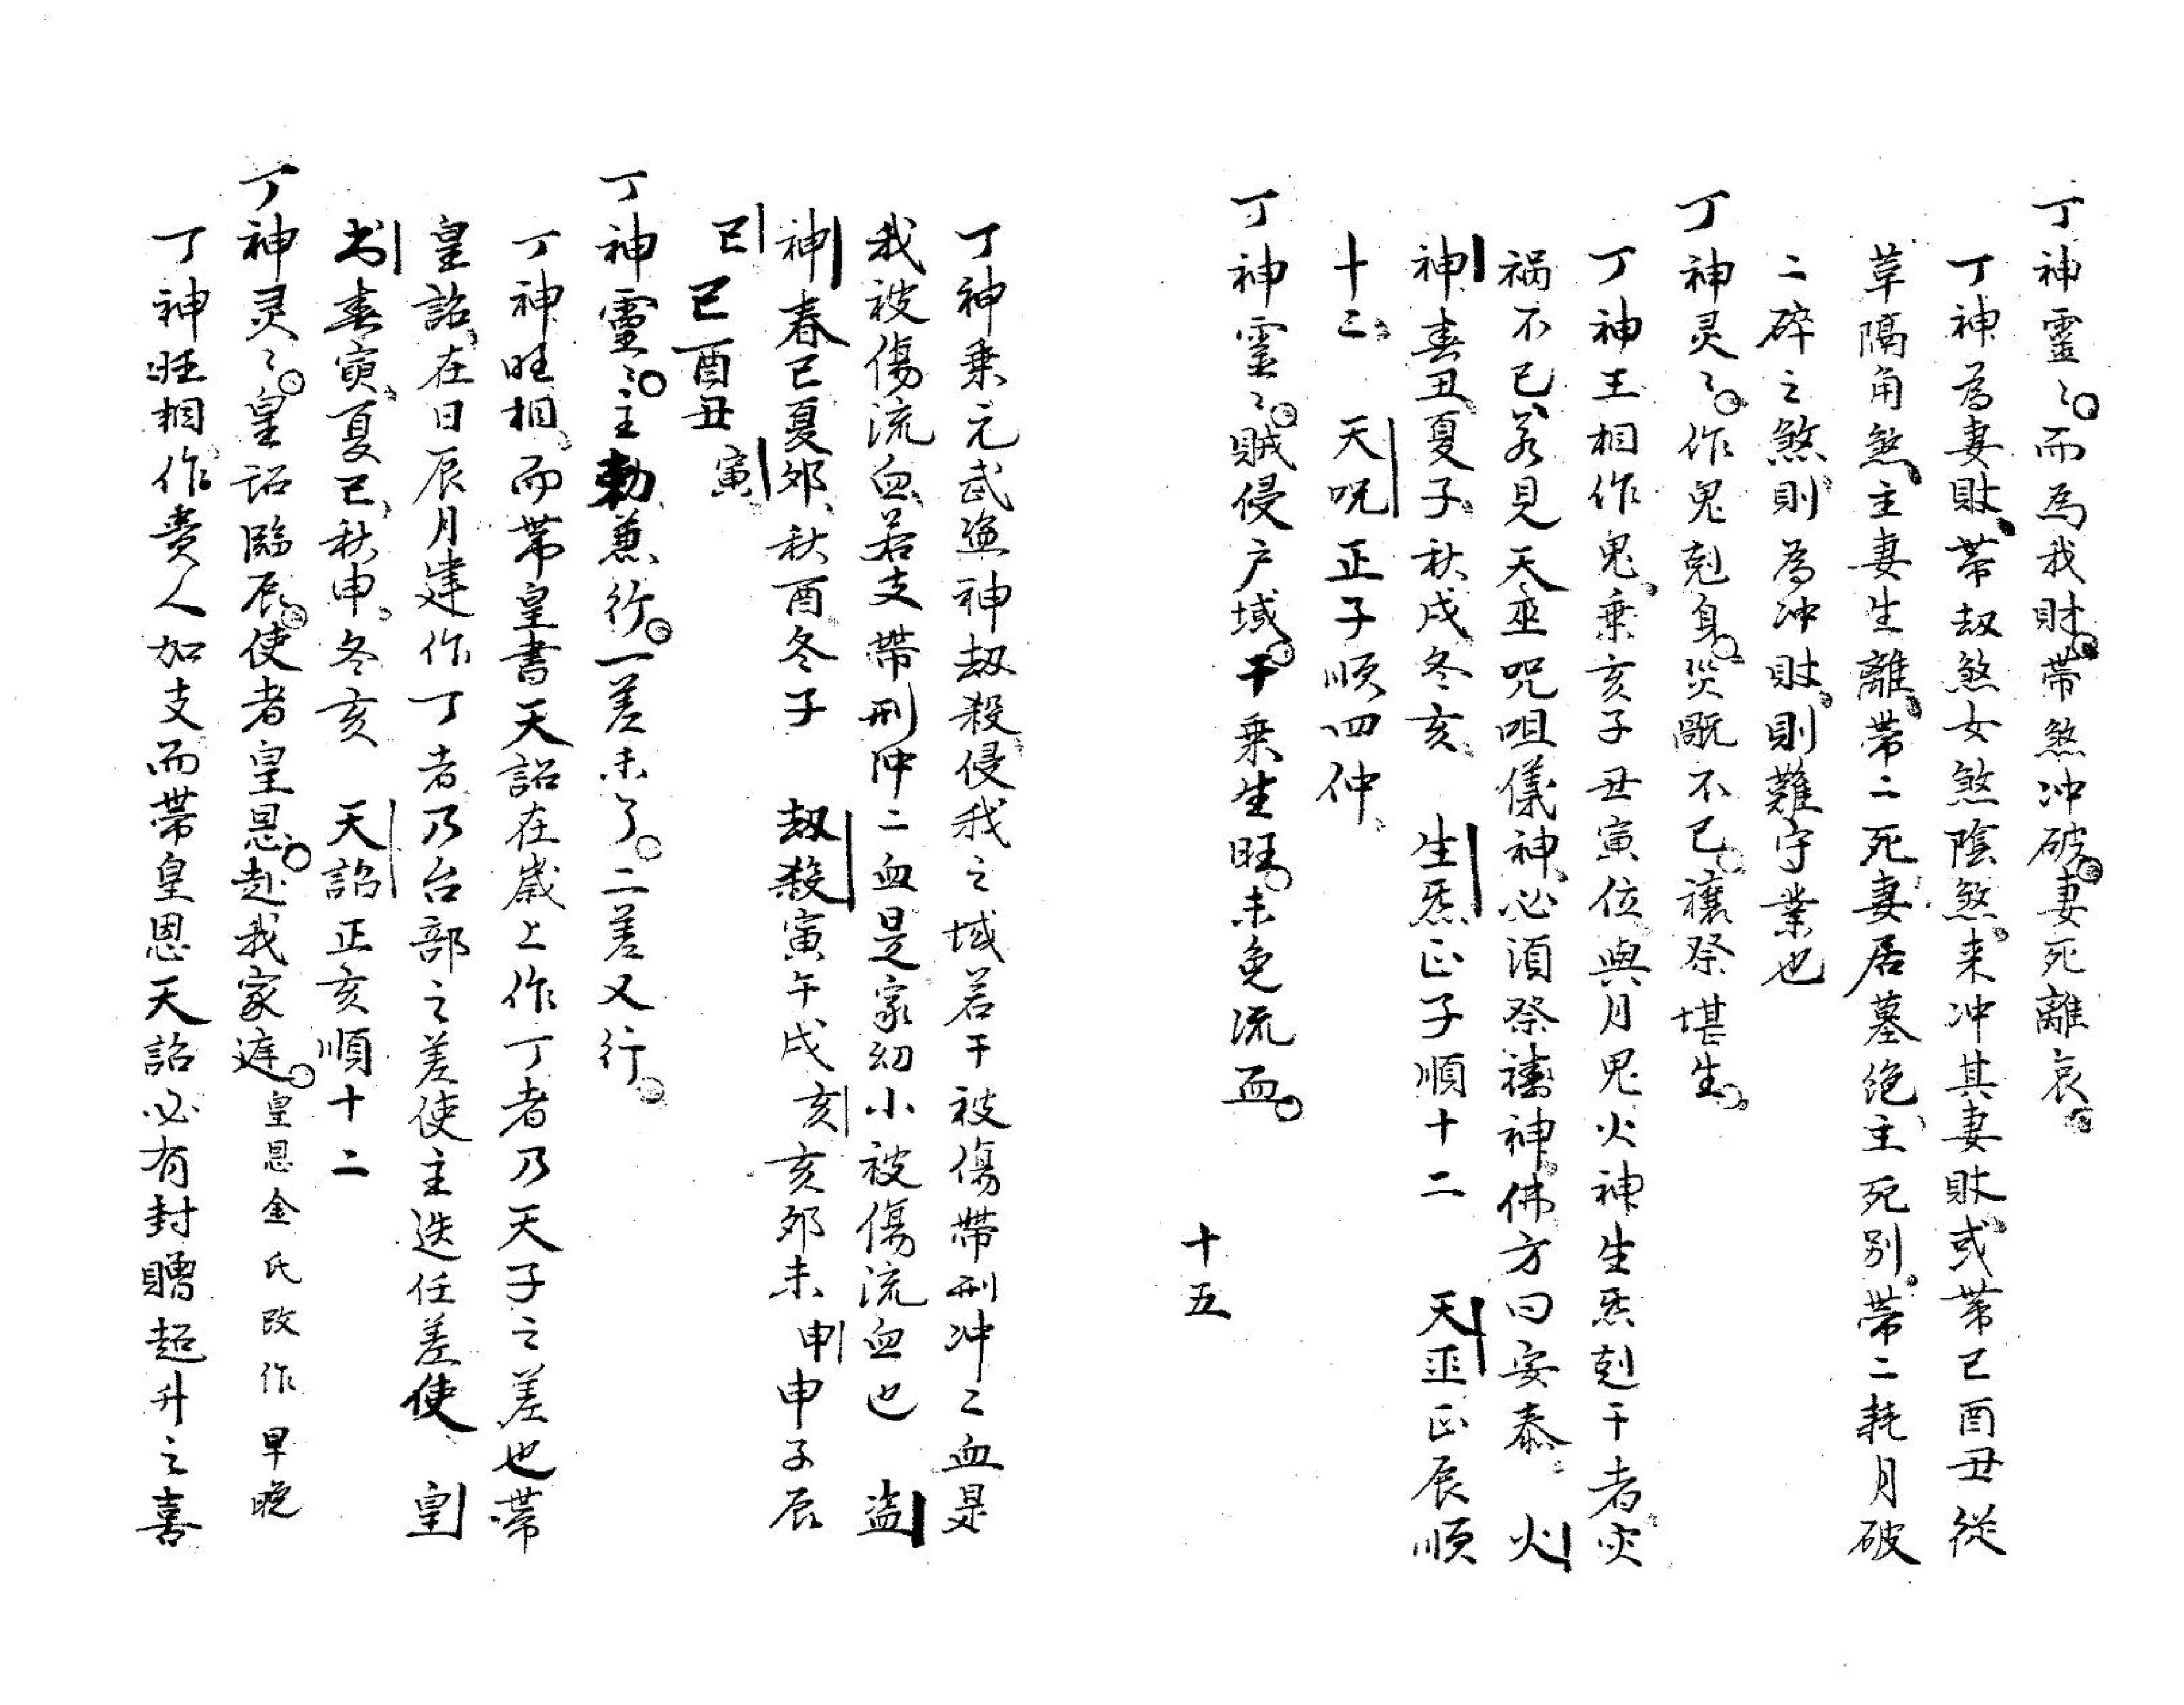 丁神靈〻而為我財帶煞冲破妻死離哀
丁神為妻財帶刼煞女煞陰煞来冲其妻財或带巳酉丑從
草隔角煞主妻生離帶二死妻居墓绝主死别帶二耗月破
二碎之煞則為冲財則難守業也
丁神灵〻作鬼剋身災厩不已禳祭堪生
丁神王相作鬼乗亥子丑寅位與月鬼火神生炁剋干者灾
祸不已若見天巫咒咀儀神必須祭禱神佛方曰安泰 火
神春丑夏子秋戌冬亥 生炁正子順十二 天巫正辰順
十二 天呪正子順四仲
丁神靈〻賊侵户域干乗生旺未免流血
十五
丁神乗元武盗神刼殺侵我之域若干被傷帶刑冲二血是
我被傷流血若支帶刑冲二血是家幼小被傷流血也 盗
神春巳夏夘秋酉冬子 刼殺寅午戌亥亥夘未申申子辰
巳巳酉丑寅
丁神靈〻主勅兼行一差未了二差又行
丁神旺相而带皇書天詔在歲上作丁者乃天子之差也带
皇詔在日辰月建作丁者乃台部之差使主迭任差使 皇
书春寅夏巳秋申冬亥 天詔正亥順十二
丁神灵〻皇詔臨辰使者皇恩赴我家庭皇恩金氏改作早晚
丁神旺相作貴人加支而帶皇恩天詔必有封贈超升之喜